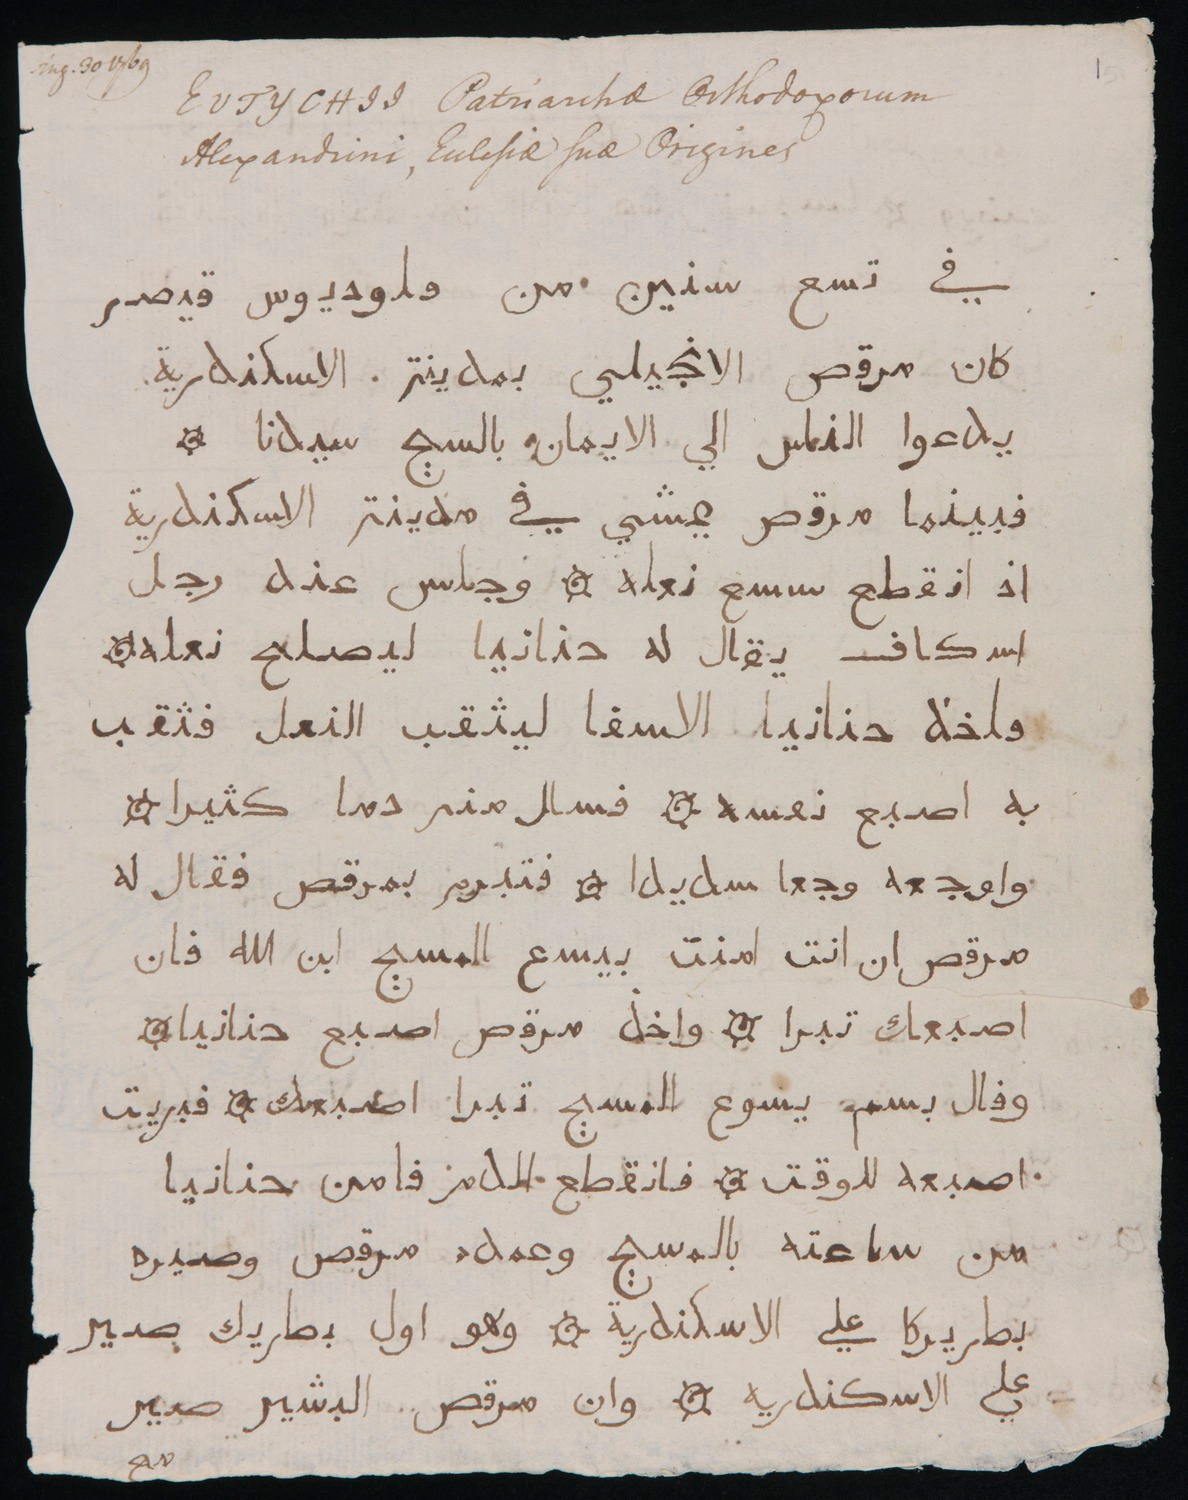 Aug. 30 1769
15
EUTYCHII Patriarchæ Orthodoxorum
Alexandrini, Eclesiæ suæ Origines
في تسع سنين من قلوديوس قيصر
كان مرقص الانجيلي بمدينة الاسكندرية
يدعوا الناس الي الايمان بالسيح سيدنا ۞
فبينما مرقص يمشي في مدينة الاسكندرية
اذ انقطع سسع نعله ۞ وجلس عند رجل
اسكاف يقال له حنانيا ليصلح نعله ۞
واخذ حنانيا الاسفا ليثقب النعل فثقب
به اصبع نفسه ۞ فسال منه دما كثيرا ۞
واوجعه وجعا سديدا ۞ فتبرم بمرقص فقال له
مرقص ان انت امنت بيسع المسيح ابن الله فان
اصبعك تبرا ۞ واخذ مرقص اصبع حنانيا ۞
وقال بسم يسوع المسيح تبرا اصبعك ۞ فبريت
اصبعه للوقت ۞ فانقطع الدم فامن حنانيا
من ساعته بالمسيح وعمده مرقص وصيره
بطريركا علي الاسكندرية ۞ وهو اول بطريك صير
علي الاسكندريه ۞ وان مرقص البشير صير
مع